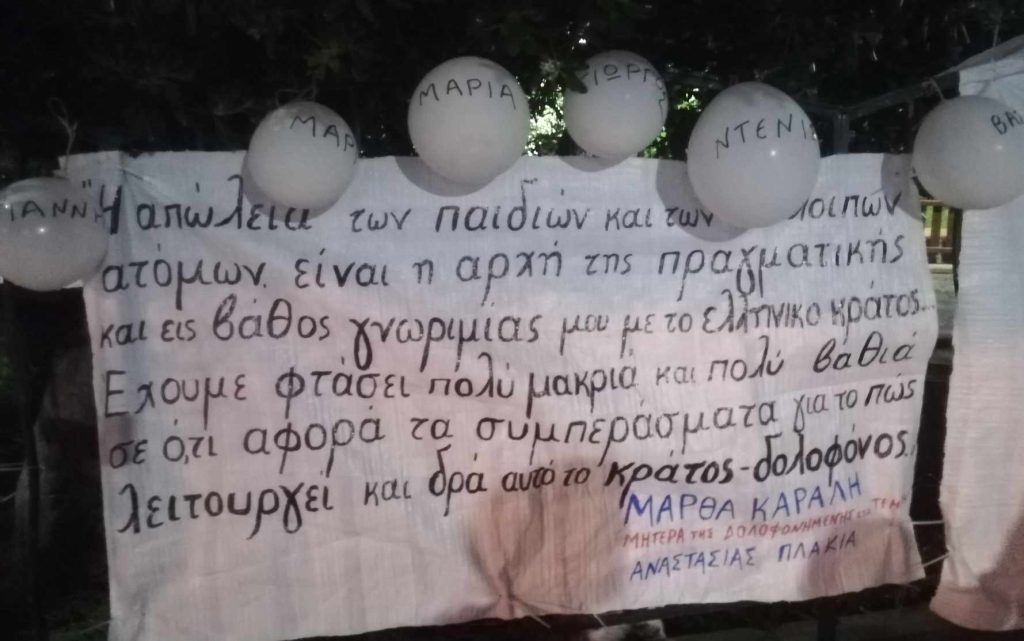 ΜΑΡ
ΜΑΡΙΑ
ΓΙΩΡΓΟΣ
ΝΤΕΝΙΣ
ΒΑΣ
ΙΑΝΝΗ
"Η απώλεια των παιδιών και των λοιπών
ατόμων είναι η αρχή της πραγματικής
και εις βάθος γνωριμίας μου με το ελληνικό κράτος...
Έχουμε φτάσει πολύ μακριά και πολύ βαθιά
σε ό,τι αφορά τα συμπεράσματα για το πώς
λειτουργεί και δρά αυτό το κράτος-δολοφόνος.
ΜΑΡΘΑ ΚΑΡΑΛΗ
ΜΗΤΕΡΑ ΤΗΣ ΔΟΛΟΦΟΝΗΜΕΝΗΣ
ΑΝΑΣΤΑΣΙΑΣ ΠΛΑΚΙΑ